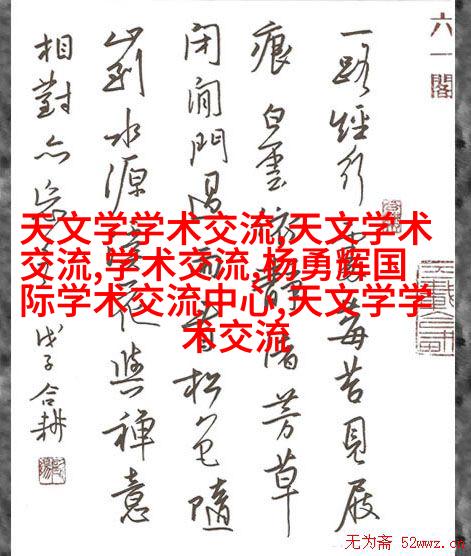 天文学学术交流,天文学术
交流,学术交流,杨勇辉国
际学术交流中心,天文学学
术交流
六一閣
一路經行處莓苔見屐
痕白雲依靜渚芳草
閉閒門過雨看松色隨
山到水源溪花與禪意
相對亦忘言戊子合耕
无为斋 52wwz.cn